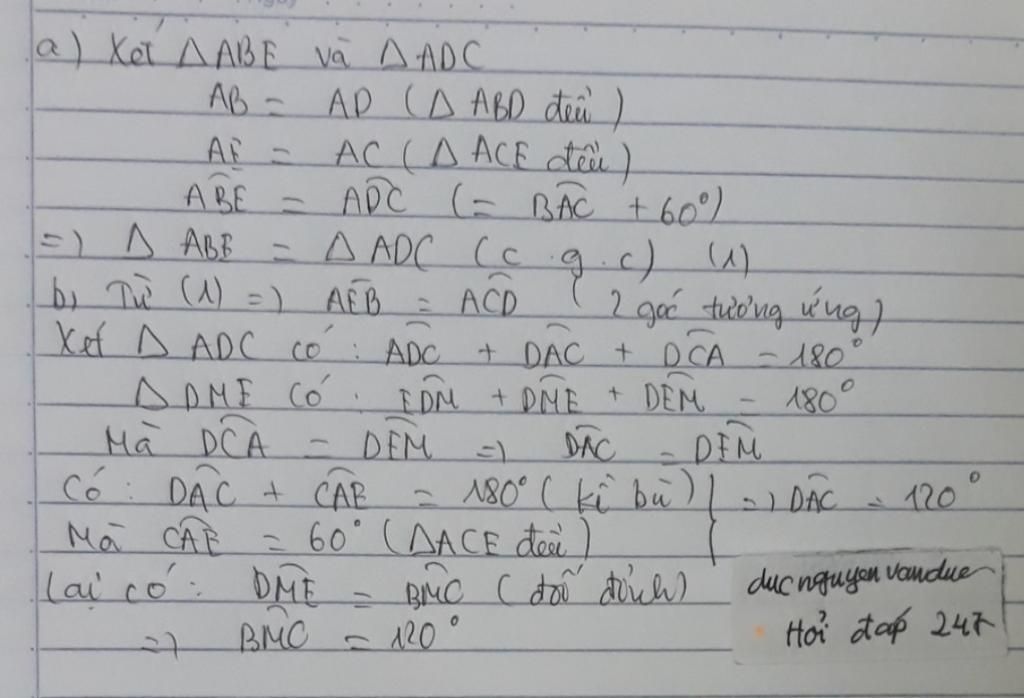 a) Xét Δ ABE và Δ ADC
AB = AD (Δ ABD đều)
AE = AC (Δ ACE đều)
ABE^ = ADC^ (= BAC^ + 60°)
=) Δ ABE = Δ ADC (c.g.c) (1)
b, Từ (1) =) AEB^ = ACD^ (2 góc tương ứng)
Xét Δ ADC có: ADC^ + DAC^ + DCA^ = 180°
Δ DME có: EDM^ + DME^ + DEM^ = 180°
Mà DCA^ = DEM^ =) DAC^ = DEM^
Có: DAC^ + CAE^ = 180° (kề bù) } =) DAC^ = 120°
Mà CAE^ = 60° (ΔACE đều)
Lại có: DME^ = BMC^ (đối đỉnh)
=) BMC^ = 120°
ducnguyenvanduc
Hỏi đáp 247